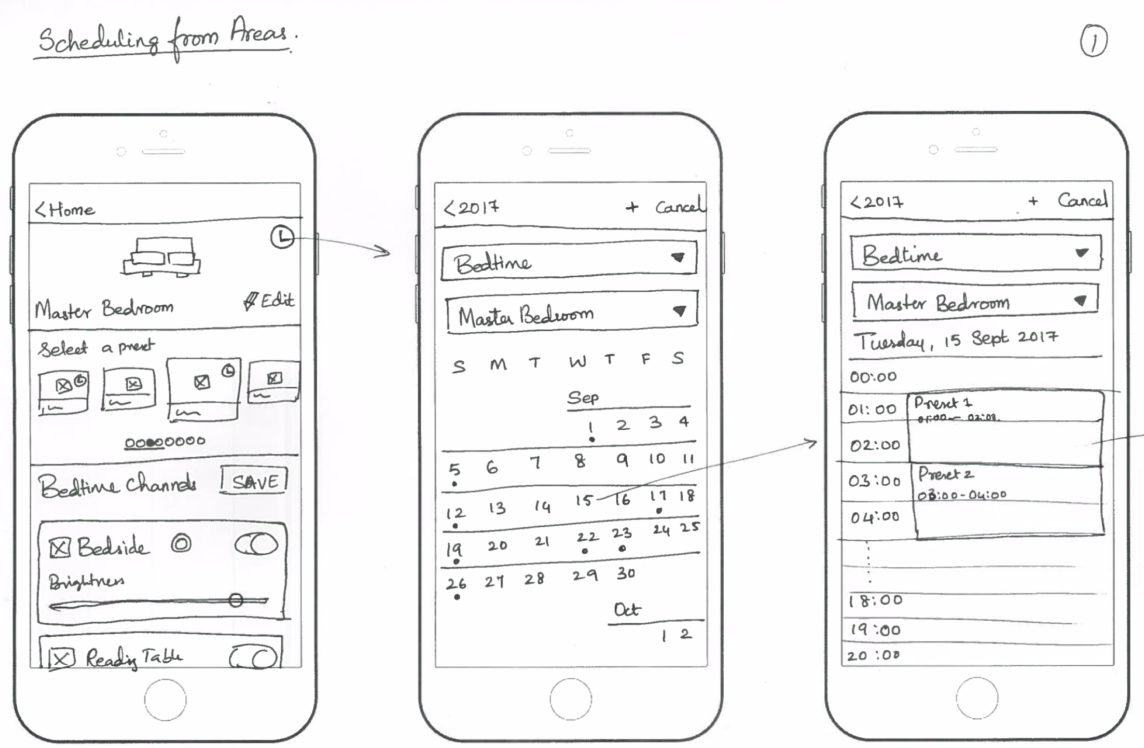 Scheduling from Areas.
1
<Home
Master Bedroom
Edit
Select a preset
Bedtime Channels
SAVE
Bedside
Brightness
Reading Table
<2017 + Cancel
Bedtime
Master Bedroom
S M T W T F S
Sep
1 2 3 4
5 6 7 8 9 10 11
12 13 14 15 16 17 18
19 20 21 22 23 24 25
26 27 28 29 30
Oct
1 2
<2017 + Cancel
Bedtime
Master Bedroom
Tuesday, 15 Sept 2017
00:00
01:00
Preset 1
01:00 - 02:00
02:00
03:00
Preset 2
03:00-04:00
04:00
18:00
19:00
20:00